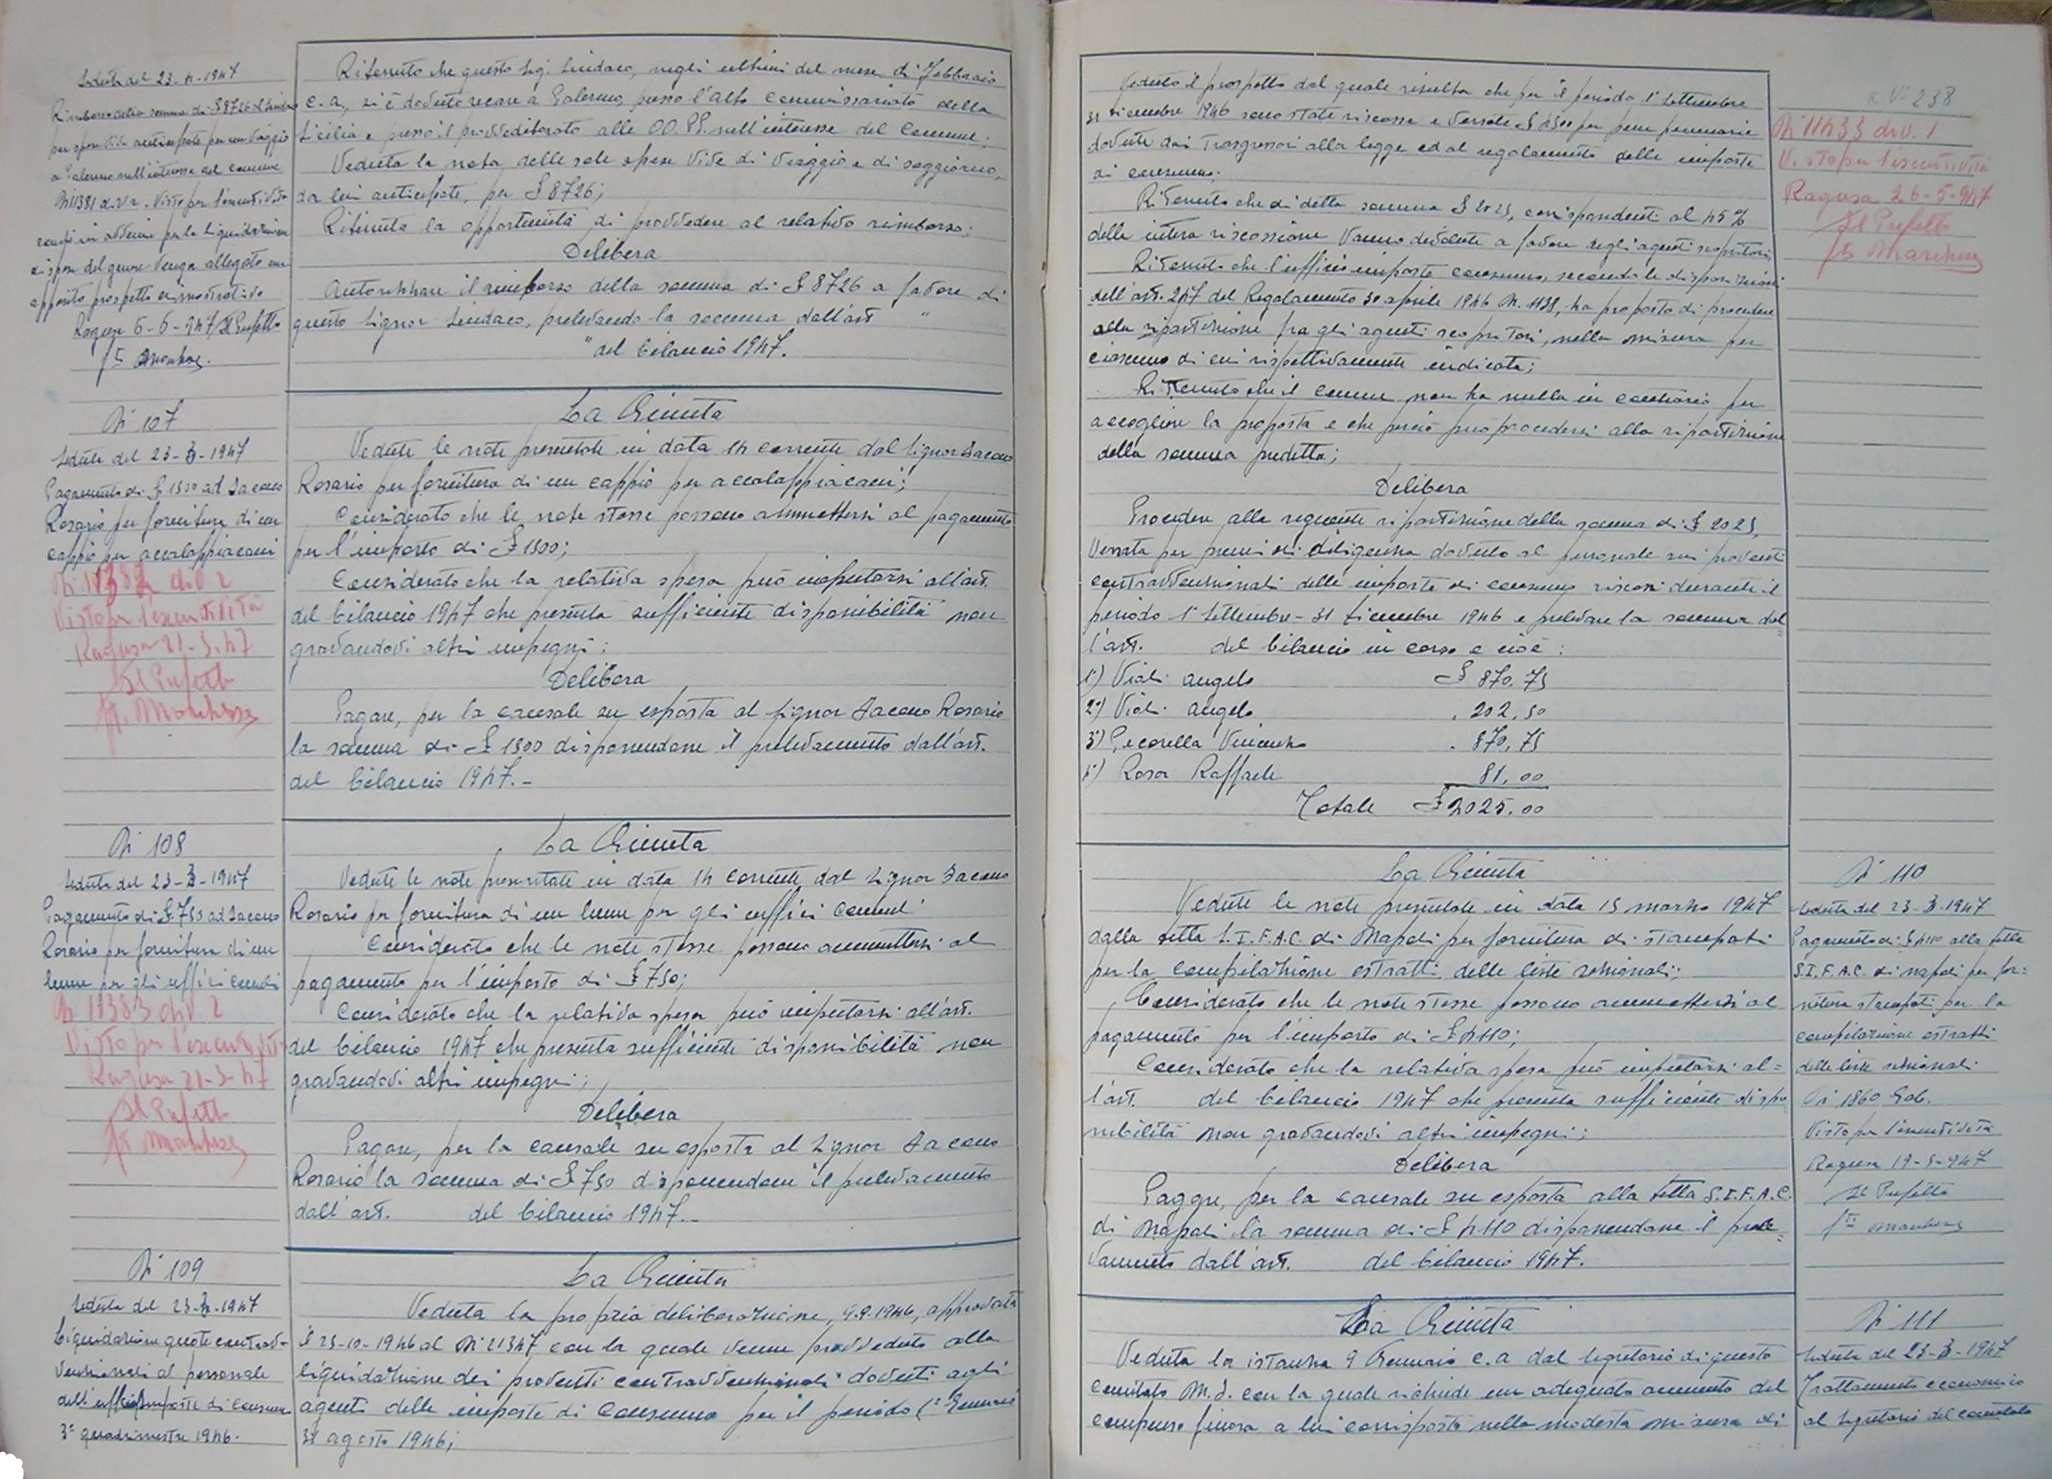 Seduta del 23-4-1947
Rimborso della somma di £ 8726 al Sindaco
per spese vive anticipate per un viaggio
a Palermo nell'interesse del Comune
N. 11381 div. 2 - Visto per l'esecutività
per la liquidazione
di spese del genere venga allegato un
apposito prospetto dimostrativo
Ragusa 6-6-947 Il Prefetto
Ritenuto che questo Sig. Sindaco, negli ultimi del mese di Febbraio
c.a., si è dovuto recare a Palermo, presso l'Alto Commissariato della
Sicilia e presso il Provveditorato alle OO. PP. nell'interesse del Comune;
Veduta la nota delle sole spese vive di viaggio e di soggiorno,
da lui anticipate, per £ 8726;
Ritenuta la opportunità di provvedere al relativo rimborso;
Delibera
Autorizzare il rimborso della somma di £ 8726 a favore di
questo Signor Sindaco, prelevando la somma dall'art "
" del bilancio 1947.
N. 107
Seduta del 23-3-1947
Pagamento di £ 1500 ad Iacono
Rosario per fornitura di un
cappio per accalappiacani
div 2
Visto per l'esecutività
Ragusa 21-5-47
Il Prefetto
La Giunta
Vedute le note presentate in data 14 corrente dal Signor Iacono
Rosario per fornitura di un cappio per accalappiacani;
Considerato che le note stesse possono ammettersi al pagamento
per l'importo di £ 1500;
Considerato che la relativa spesa può imputarsi all'art.
del bilancio 1947 che presenta sufficiente disponibilità non
gravandovi altri impegni;
Delibera
Pagare, per la causale su esposta al Signor Iacono Rosario
la somma di £ 1500 disponendone il prelevamento dall'art.
del bilancio 1947.-
N. 108
Seduta del 23-3-1947
Pagamento di £ 750 ad Iacono
Rosario per fornitura di un
lume per gli uffici comunali
N 11383 div 2
Visto per l'esecutività
Ragusa 21-5-47
Il Prefetto
La Giunta
Vedute le note presentate in data 14 corrente dal Signor Iacono
Rosario per fornitura di un lume per gli uffici comunali
Considerato che le note stesse possono ammettersi al
pagamento per l'importo di £ 750;
Considerato che la relativa spesa può imputarsi all'art.
del bilancio 1947 che presenta sufficiente disponibilità non
gravandovi altri impegni;
Delibera
Pagare, per la causale su esposta al Signor Iacono
Rosario la somma di £ 750 disponendone il prelevamento
dall'art. del bilancio 1947.-
N. 109
Seduta del 23-3-1947
Liquidazione quote contrav-
venzionali al personale
dell'ufficio imposte di Consumo
3° quadrimestre 1946.
La Giunta
Veduta la propria deliberazione, 9.9.1946, approvata
il 25-10-1946 al N. 21347 con la quale venne provveduto alla
liquidazione dei proventi contravvenzionali dovuti agli
agenti delle imposte di Consumo per il periodo 1° Gennaio
31 agosto 1946;
Veduto il prospetto dal quale risulta che per il periodo 1° Settembre
31 Dicembre 1946 sono state riscosse e versate £ 4500 per pene pecuniarie
dovute dai trasgressori alla legge ed al regolamento delle imposte
di consumo;
Ritenuto che di detta somma £ 2025, corrispondenti al 45%
della intera riscossione vanno devolute a favore degli agenti scopritori;
Ritenuto che l'ufficio imposte consumo, secondo le disposizioni
dell'art. 247 del Regolamento 30 aprile 1936 N. 1138, ha proposto di procedere
alla ripartizione fra gli agenti scopritori, nella misura per
ciascuno di cui rispettivamente indicata;
Ritenuto che il Comune non ha nulla in contrario per
accogliere la proposta e che perciò può procedersi alla ripartizione
della somma predetta;
Delibera
Procedere alla seguente ripartizione della somma di £ 2025,
versata per premi di diligenza dovuto al personale sui proventi
contravvenzionali delle imposte di consumo riscossi durante il
periodo 1° Settembre - 31 Dicembre 1946 e prelevare la somma dal-
l'art. del bilancio in corso e cioè:
1°) Viali Angelo £ 870.75
2°) Viali Angelo . 202.50
3°) Pecorella Vincenzo . 870,75
4°) Rosa Raffaele 81,00
Totale £ 2025.00
N° 238
N. 11433 div. 1
Visto per l'esecutività
Ragusa 26-5-947
Il Prefetto
La Giunta
Vedute le note presentate in data 15 marzo 1947
dalla Ditta S.I.F.A.C. di Napoli per fornitura di stampati
per la compilazione estratti delle liste sezionali;
Considerato che le note stesse possono ammettersi al
pagamento per l'importo di £ 4110;
Considerato che la relativa spesa può imputarsi al=
l'art. del bilancio 1947 che presenta sufficiente dispo-
nibilità non gravandovi altri impegni;
Delibera
Pagare, per la causale su esposta alla Ditta S.I.F.A.C.
di Napoli la somma di £ 4110 disponendone il prele-
vamento dall'art. del bilancio 1947.
N. 110
Seduta del 23-3-1947
Pagamento di £ 4110 alla Ditta
S.I.F.A.C. di Napoli per for=
nitura stampati per la
compilazione estratti
delle liste sezionali.
N. 1860 Gab.
Visto per l'esecutività
Ragusa 19-5-947
Il Prefetto
La Giunta
Veduta la istanza 9 Gennaio c.a dal Segretario di questo
Comitato M.I. con la quale richiede un adeguato aumento del
compenso finora a lui corrisposto nella modesta misura di
N. 111
Seduta del 23-3-1947
Trattamento economico
al Segretario del Comitato